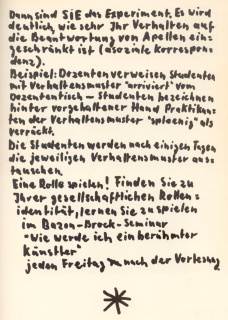 Dann sind SIE das Experiment. Es wird
deutlich, wie sehr Ihr Verhalten auf
die Beantwortung von Apellen ein-
geschränkt ist (asoziale Korrespon-
denz).
Beispiel: Dozenten verweisen Studenten
mit Verhaltensmuster "arriviert" vom
Dozententisch – Studenten bezeichnen
hinter vorgehaltener Hand Praktikan-
ten der Verhaltensmuster "spleenig" als
verrückt.
Die Studenten werden nach einigen Tagen
die jeweiligen Verhaltensmuster aus-
tauschen.
Eine Rolle spielen! Finden Sie zu
Ihrer gesellschaftlichen Rollen=
identität, lernen Sie zu spielen
im Bazon-Brock-Seminar
"Wie werde ich ein berühmter
Künstler"
jeden Freitag nach der Vorlesung